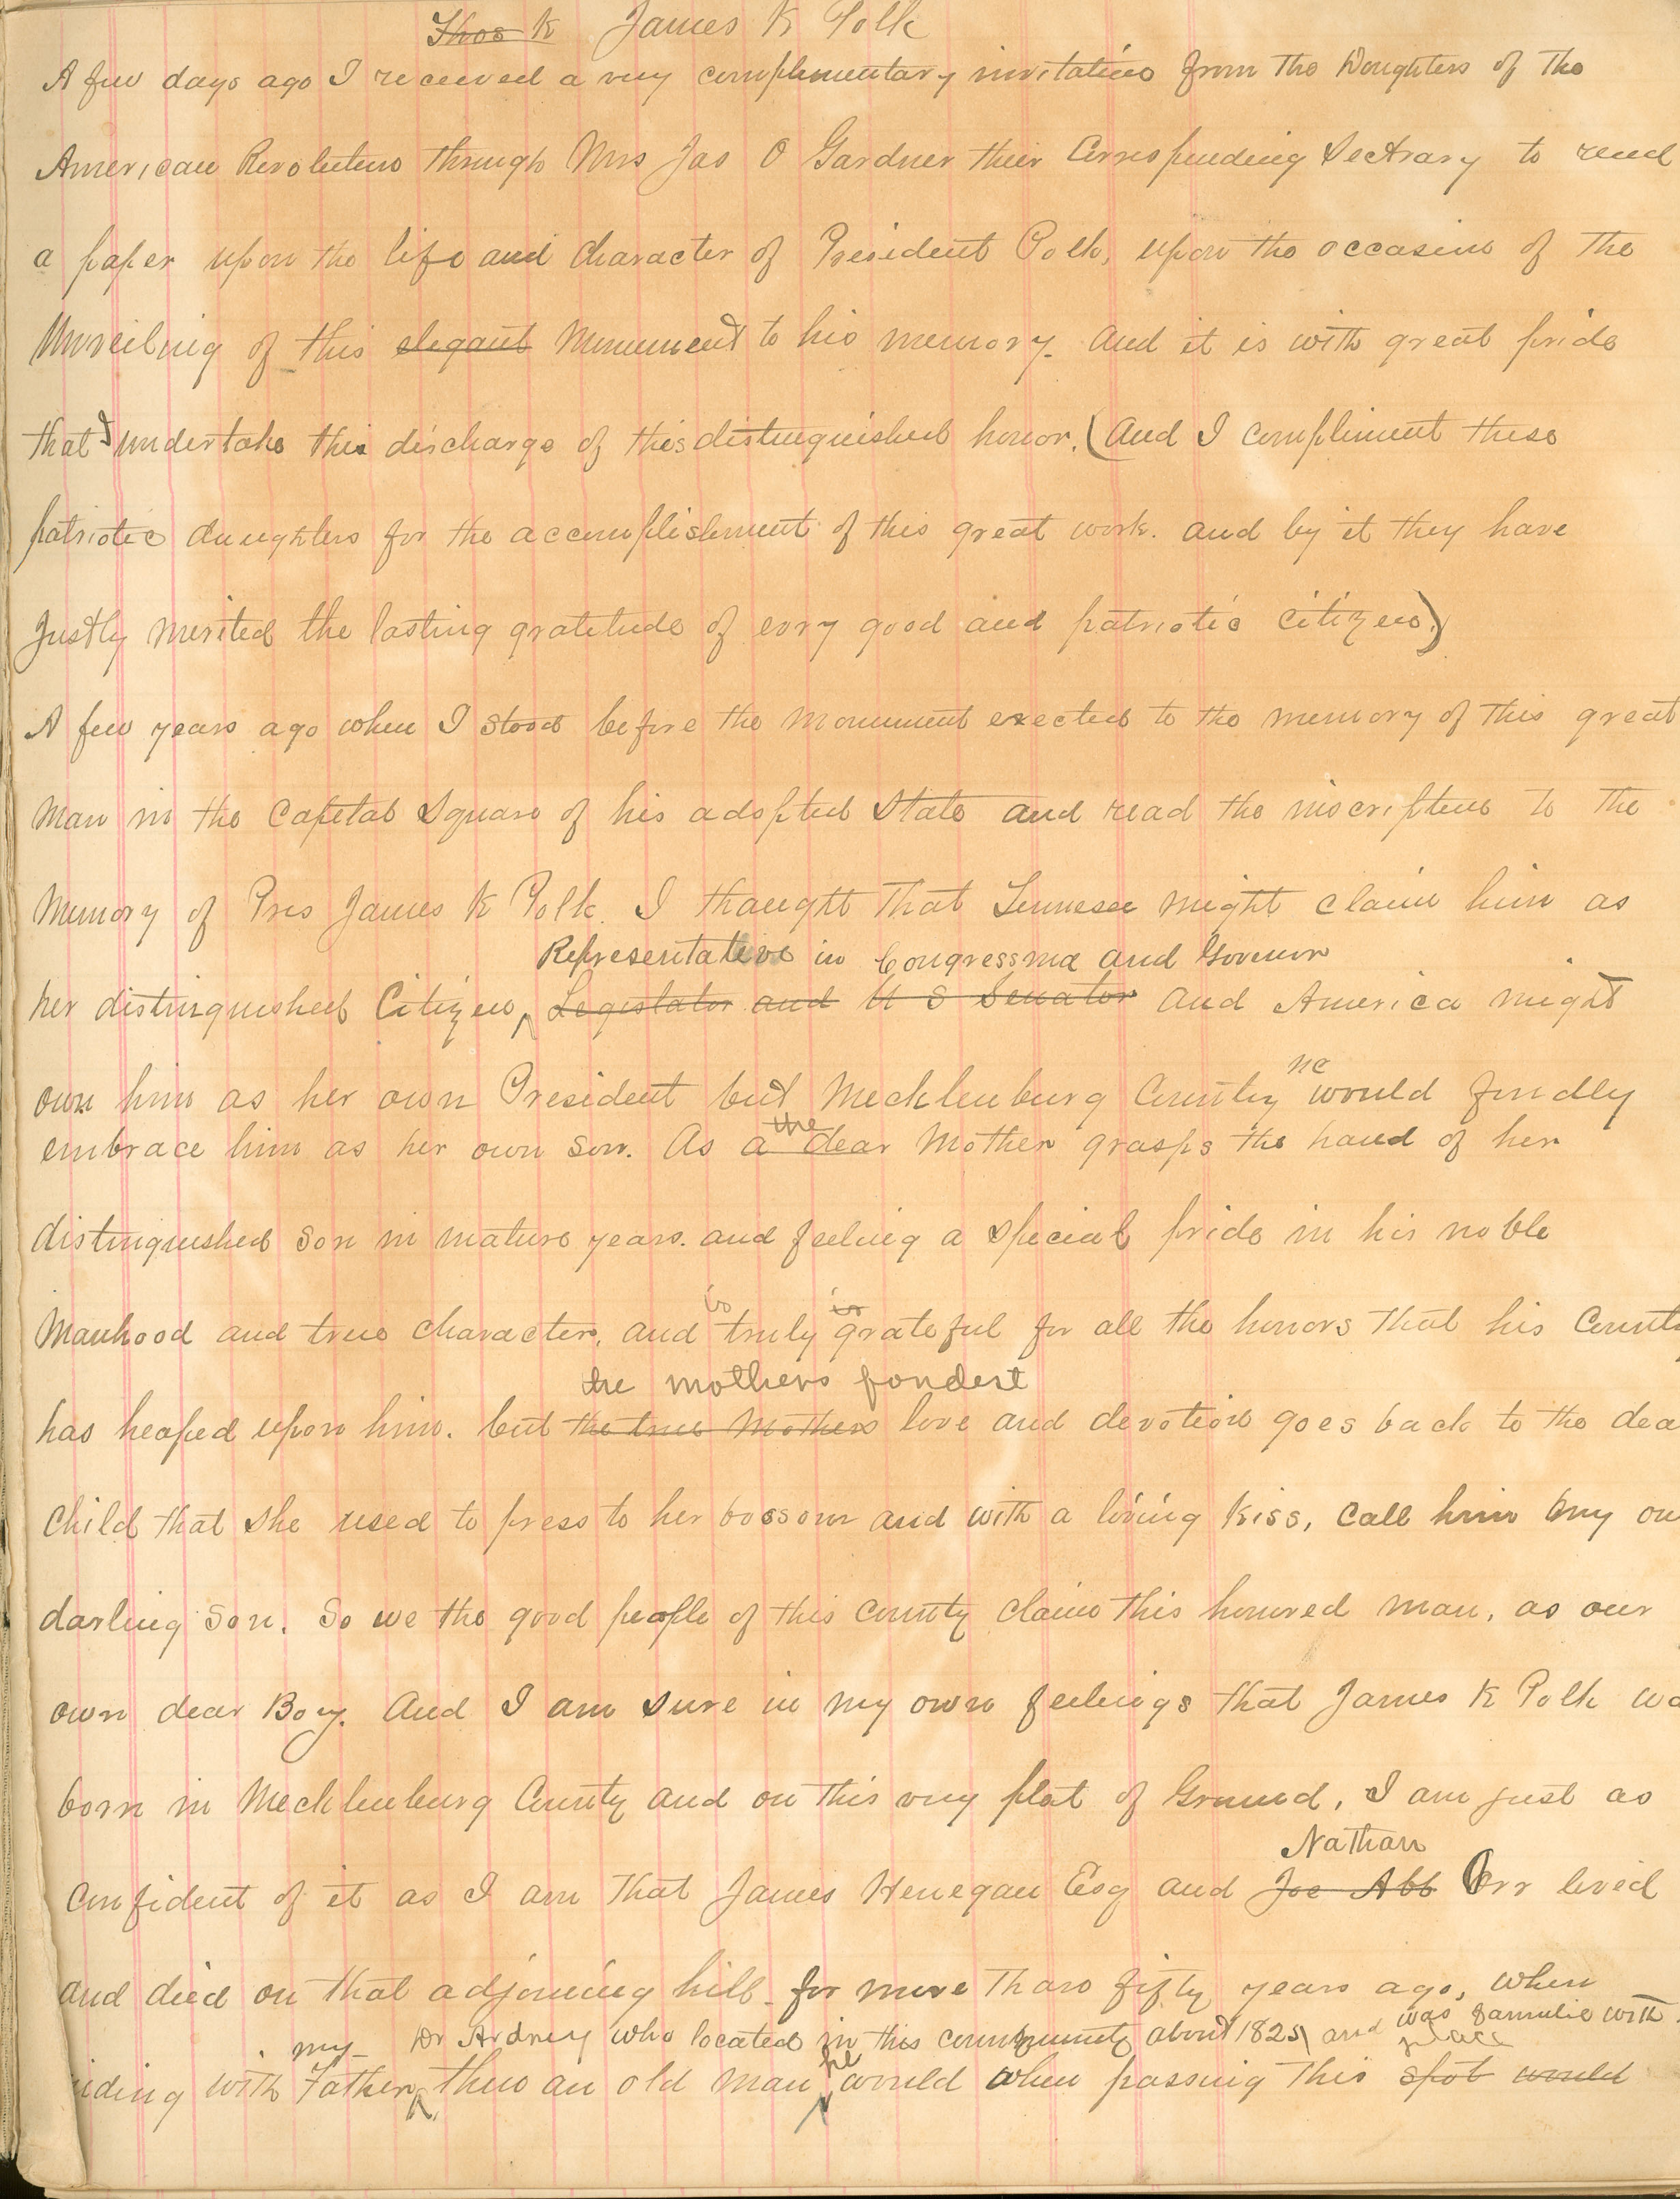 Thos K James K Polk
A few days ago I received a very complimentary invitation from the Doughters of the
American Revolution through Mrs Jas O Gardner their Corresponding Sectrary to read
a paper upon the life and Character of President Polk, upon the occasion of the
Unveiling of this elegant Monument to his memory. and it is with great pride
that I undertake this discharge of this distinguished honor. (and I compliment these
patriotic daughters for the accomplishment of this great work. and by it they have
Justly merited the lasting gratitude of evry good and patriotic citizen.)
A few years ago when I stood before the monument erected to the memory of this great
man in the Capital Square of his adopted State and read the inscription to the
Memory of Pres James K Polk. I thought that Tennesee might claim him as
Representative in Congressma and Govenor
her distinguished Citizen, Legistator and U S Senator and America might
ne
own him as her own President but Mecklenburg County would fondly
the
embrace him as her own son. As a dear Mother grasps the hand of her
distinguished son in mature years. and feeling a special pride in his noble
is is
Manhood and true character, and truly grateful for all the honors that his Count
the mothers fondest
has heaped upon him. but the true Mothers love and devotion goes back to the dea
child that she used to press to her bossom and with a loving kiss, call him my ow
darling son. So we the good people of this County claim this honored man, as our
own dear Boy. And I am sure in my own feelings that James K Polk wa
born in Mecklenburg County and on this very plat of Ground, I am just as
Nathan
confident of it as I am that James Henegan Esq and Joe Abb Orr lived
and died on that adjoining hill for more than fifty years ago, when
my Dr Ardrey who located in this community about 1825 and was familie with
he place
iding with Father, then an old man would when passing this spot would